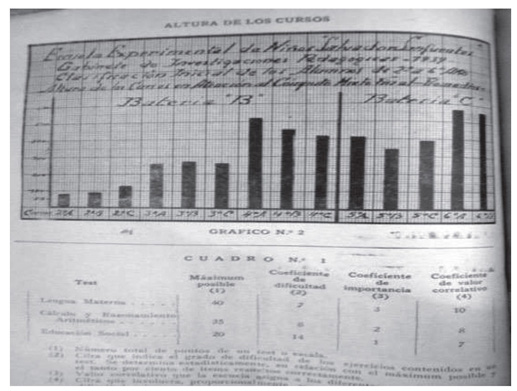 ALTURA DE LOS CURSOS
Escuela Experimental de Niñas "Salvador Sanfuentes"
Gabinete de Investigaciones Pedagógicas - 1939
Clasificación Inicial de los Alumnos de 2º a 6º Año
Altura de los Cursos en Atención al
Batería "B" Batería "C"
Cursos 2ºA 2ºB 2ºC 3ºA 3ºB 3ºC 4ºA 4ºB 4ºC 5ºA 5ºB 5ºC 6ºA 6ºB
GRAFICO N.º 2
CUADRO N.º 1
Test Máximum posible (1) Coeficiente de dificultad (2) Coeficiente de importancia (3) Coeficiente de valor correlativo (4)
Lengua Materna 40 7 3 10
Cálculo y Razonamiento
Aritméticos 35 6 2 8
Educación Social 20 14 1 7
(1) Número total de puntos de un test o escala.
(2) Cifra que indica el grado de dificultad de los ejercicios contenidos en un
test. Se determina estadísticamente, en relación con el máximum posible y
el tanto por ciento de items resueltos correctamente.
(3) Valor correlativo que la escuela asigna a los
(4) Cifra que